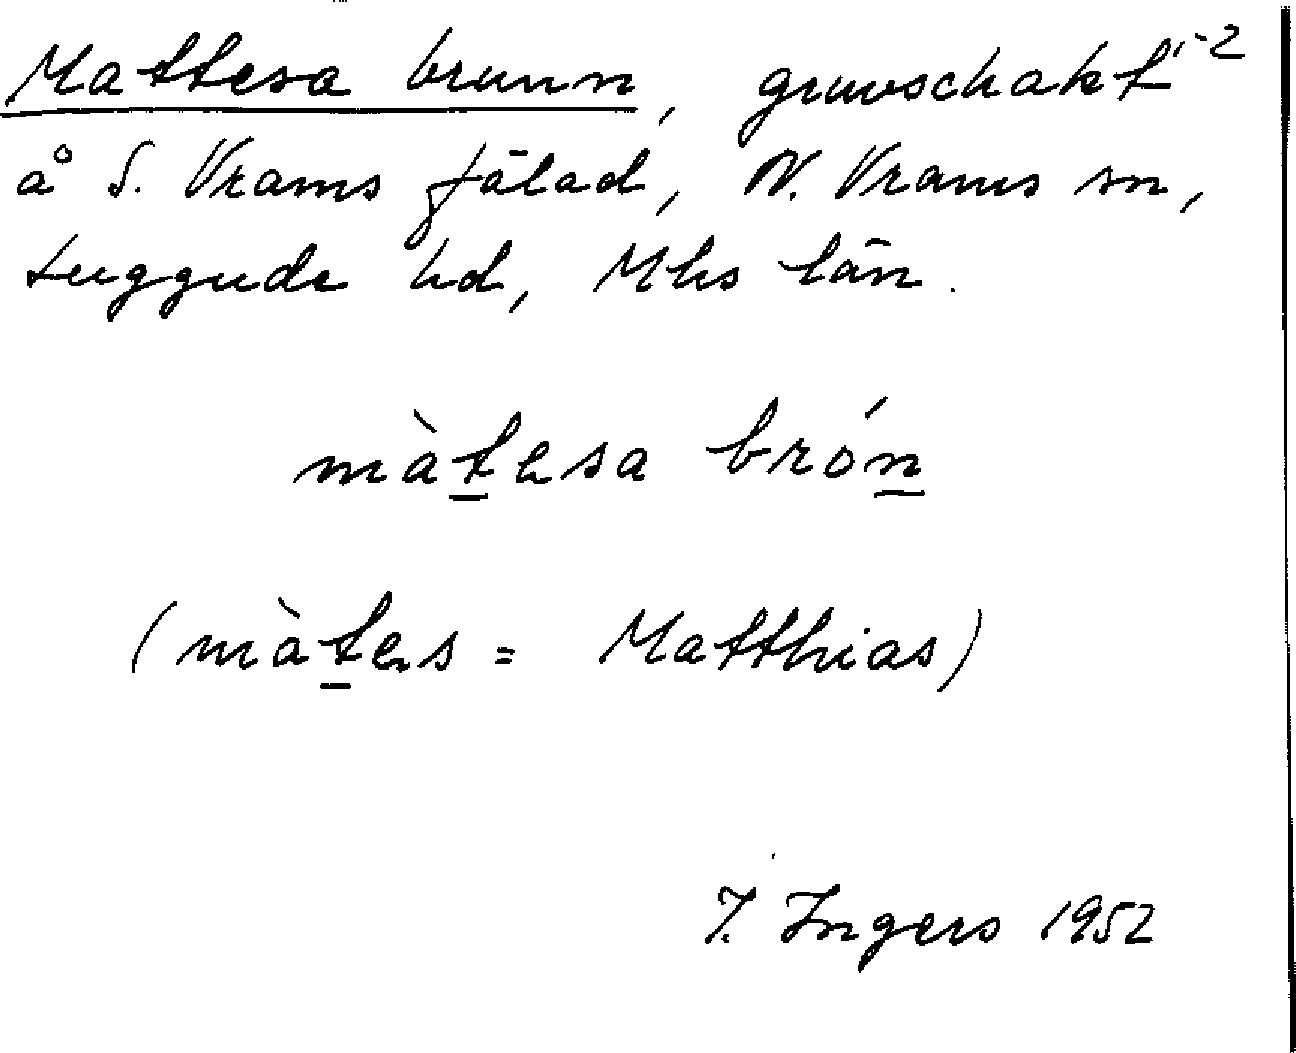 Mattesa brunn, gruvschakt i-2
å S. Vrams fälad, N. Vrams sn,
Luggude hd, Mhs län.
màtesa brón
(màtes = Matthias)
I. Ingers 1952